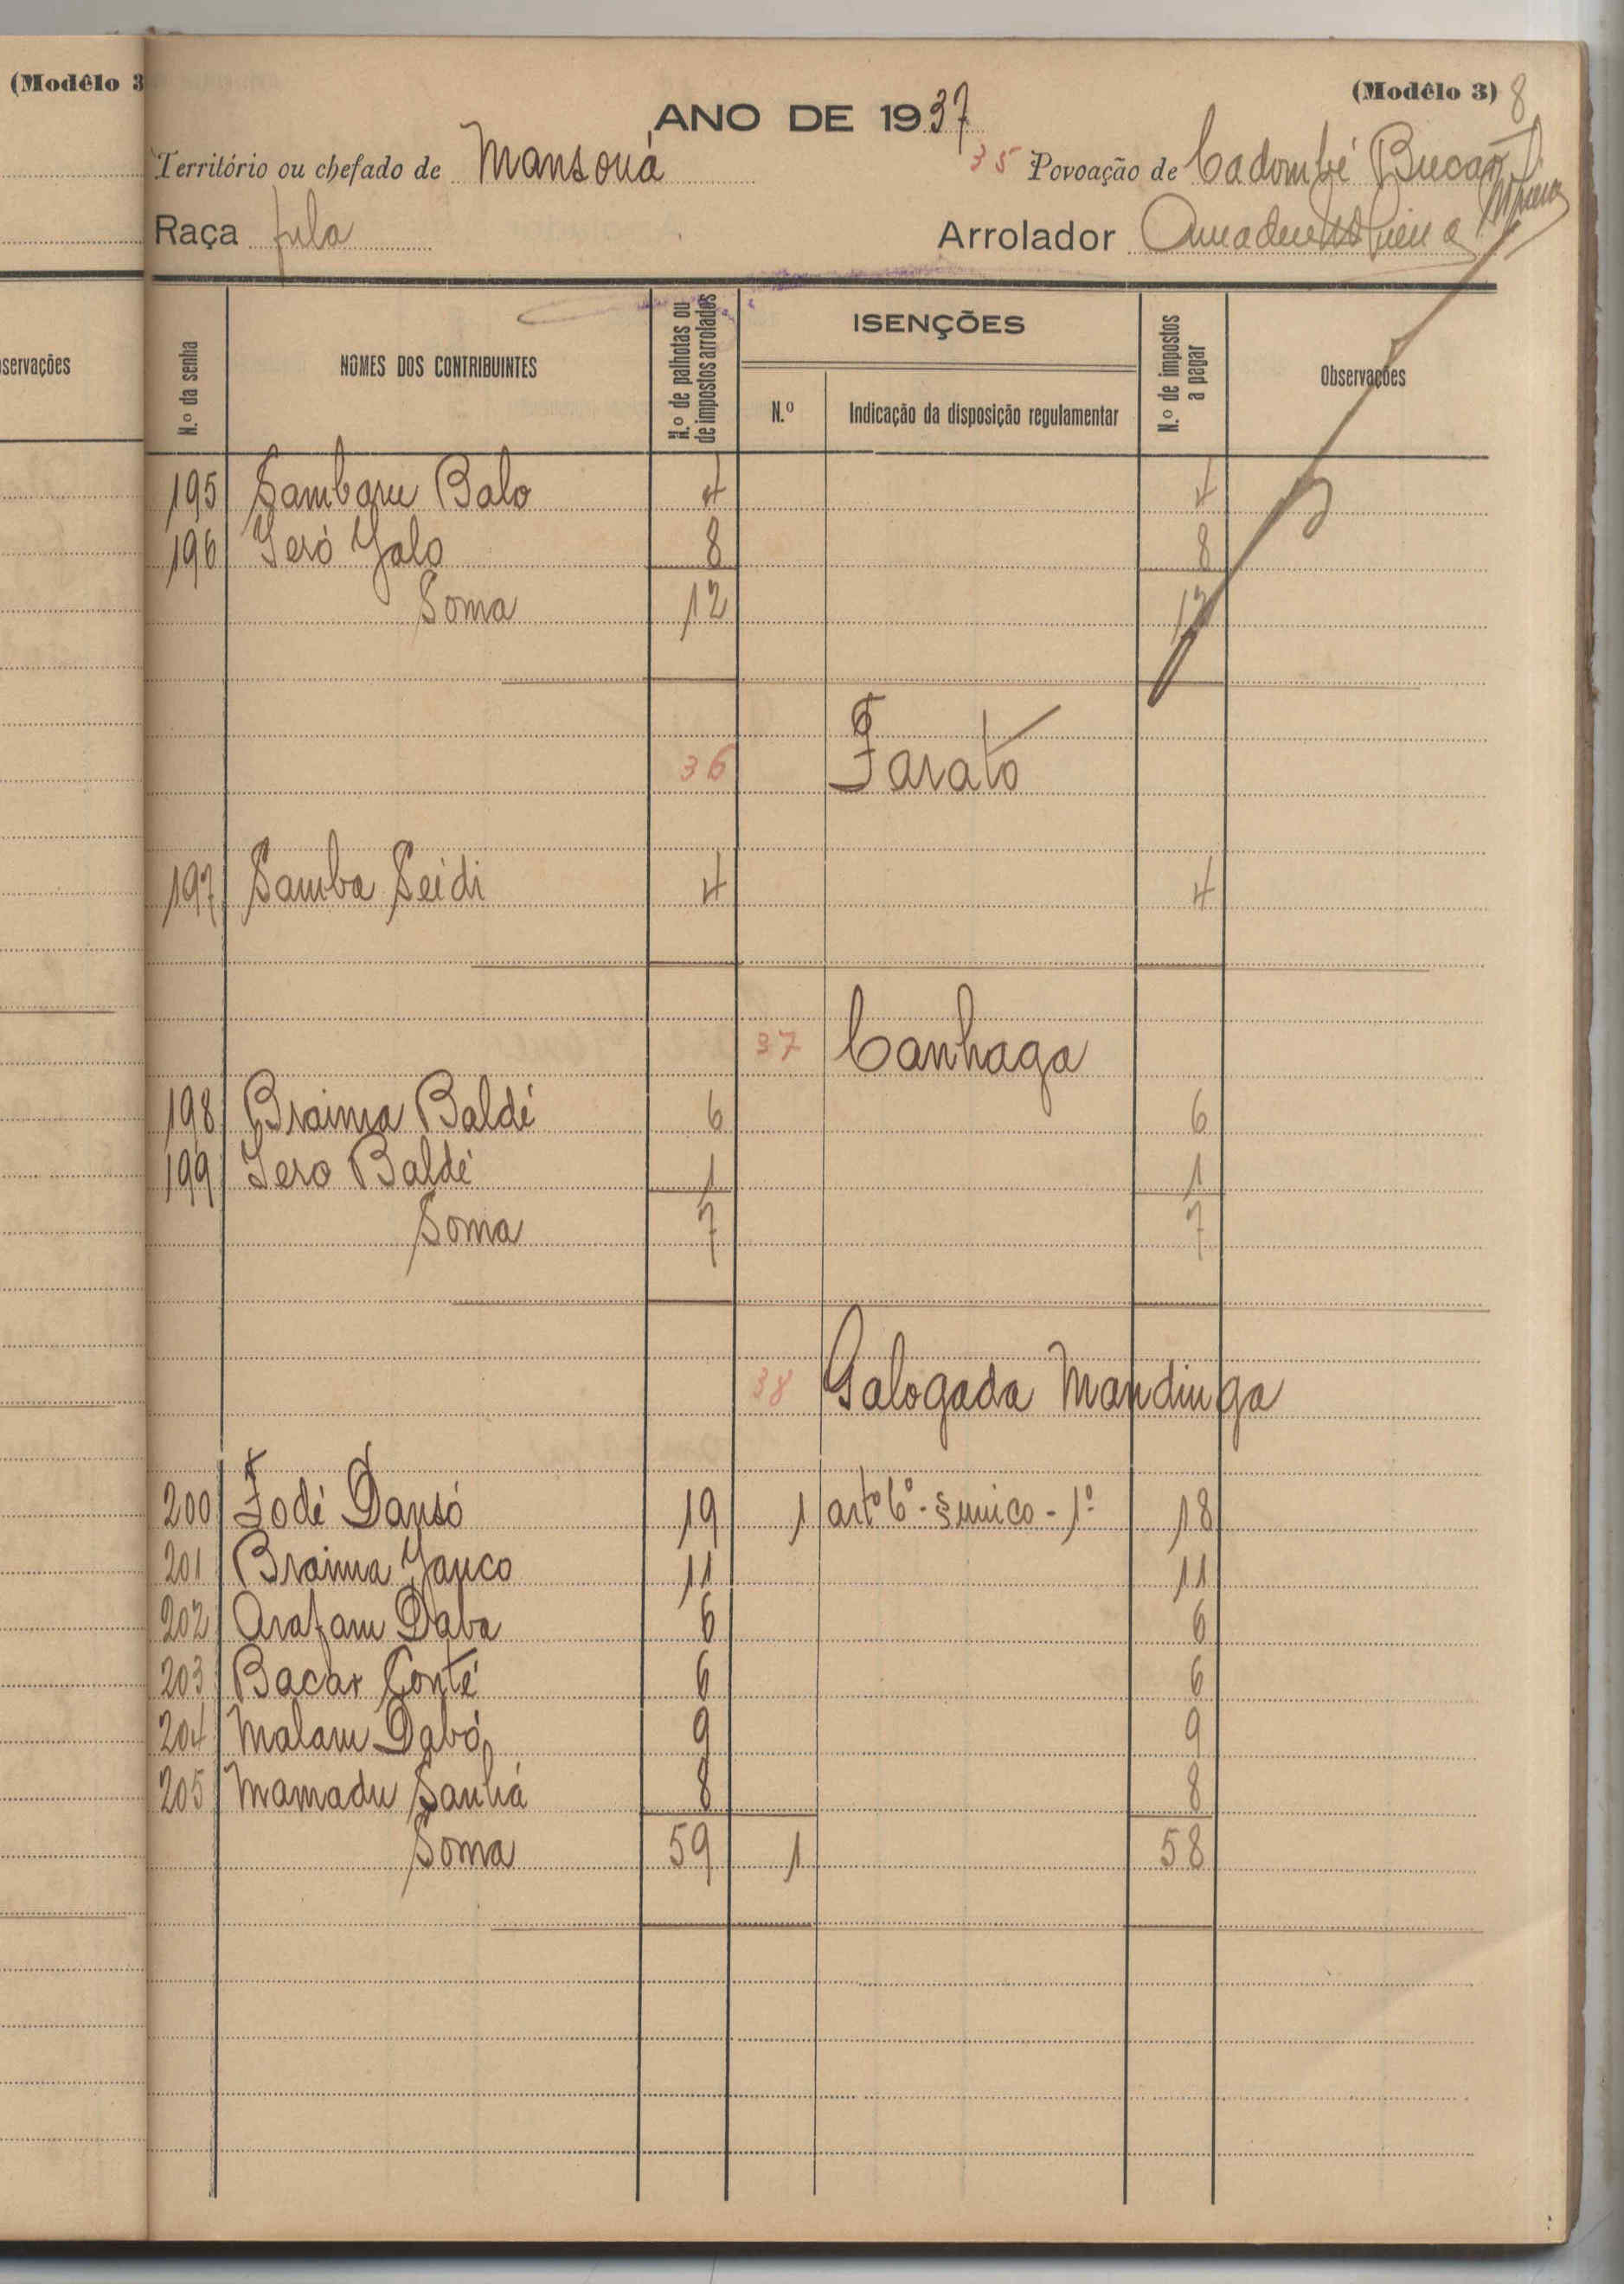 (Modêlo 3
servações
(Modêlo 3) 8
ANO DE 1937
Território ou chefado de Mansouá 35 Povoação de Cadombé Bucar
Raça fula Arrolador Amadeu
N.º da senha NOMES DOS CONTRIBUINTES N.º de palhotas ou de impostos arrolados ISENÇÕES N.º de impostos a pagar Observações
N.º Indicação da disposição regulamentar
195 Sambaru Balo 4 4
196 Ieró Jalo 8 8
Soma 12 12
36 Farató
197 Samba Seidi 4 4
37 Canhaga
198 Braima Baldé 6 6
199 Iero Baldé 1 1
Soma 7 7
38 Galogada Mandinga
200 Fodé Dansó 19 1 artº 6º - § unico - 1º 18
201 Braima Janco 11 11
202 Arafam Daba 6 6
203 Bacar Conté 6 6
204 Malam Dabó 9 9
205 Mamadu Sanhá 8 8
Soma 59 1 58